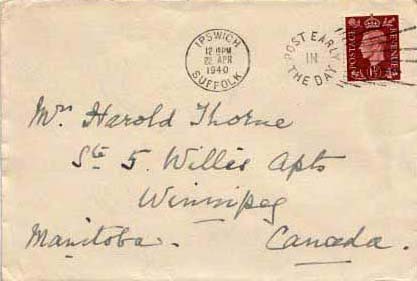 IPSWICH
12 15PM
22 APR
1940
SUFFOLK
POST EARLY
IN
THE DAY
POSTAGE REVENUE
Mrs Harold Thorne
Ste 5. Willis Apts
Winnipeg
Manitoba. Canada.